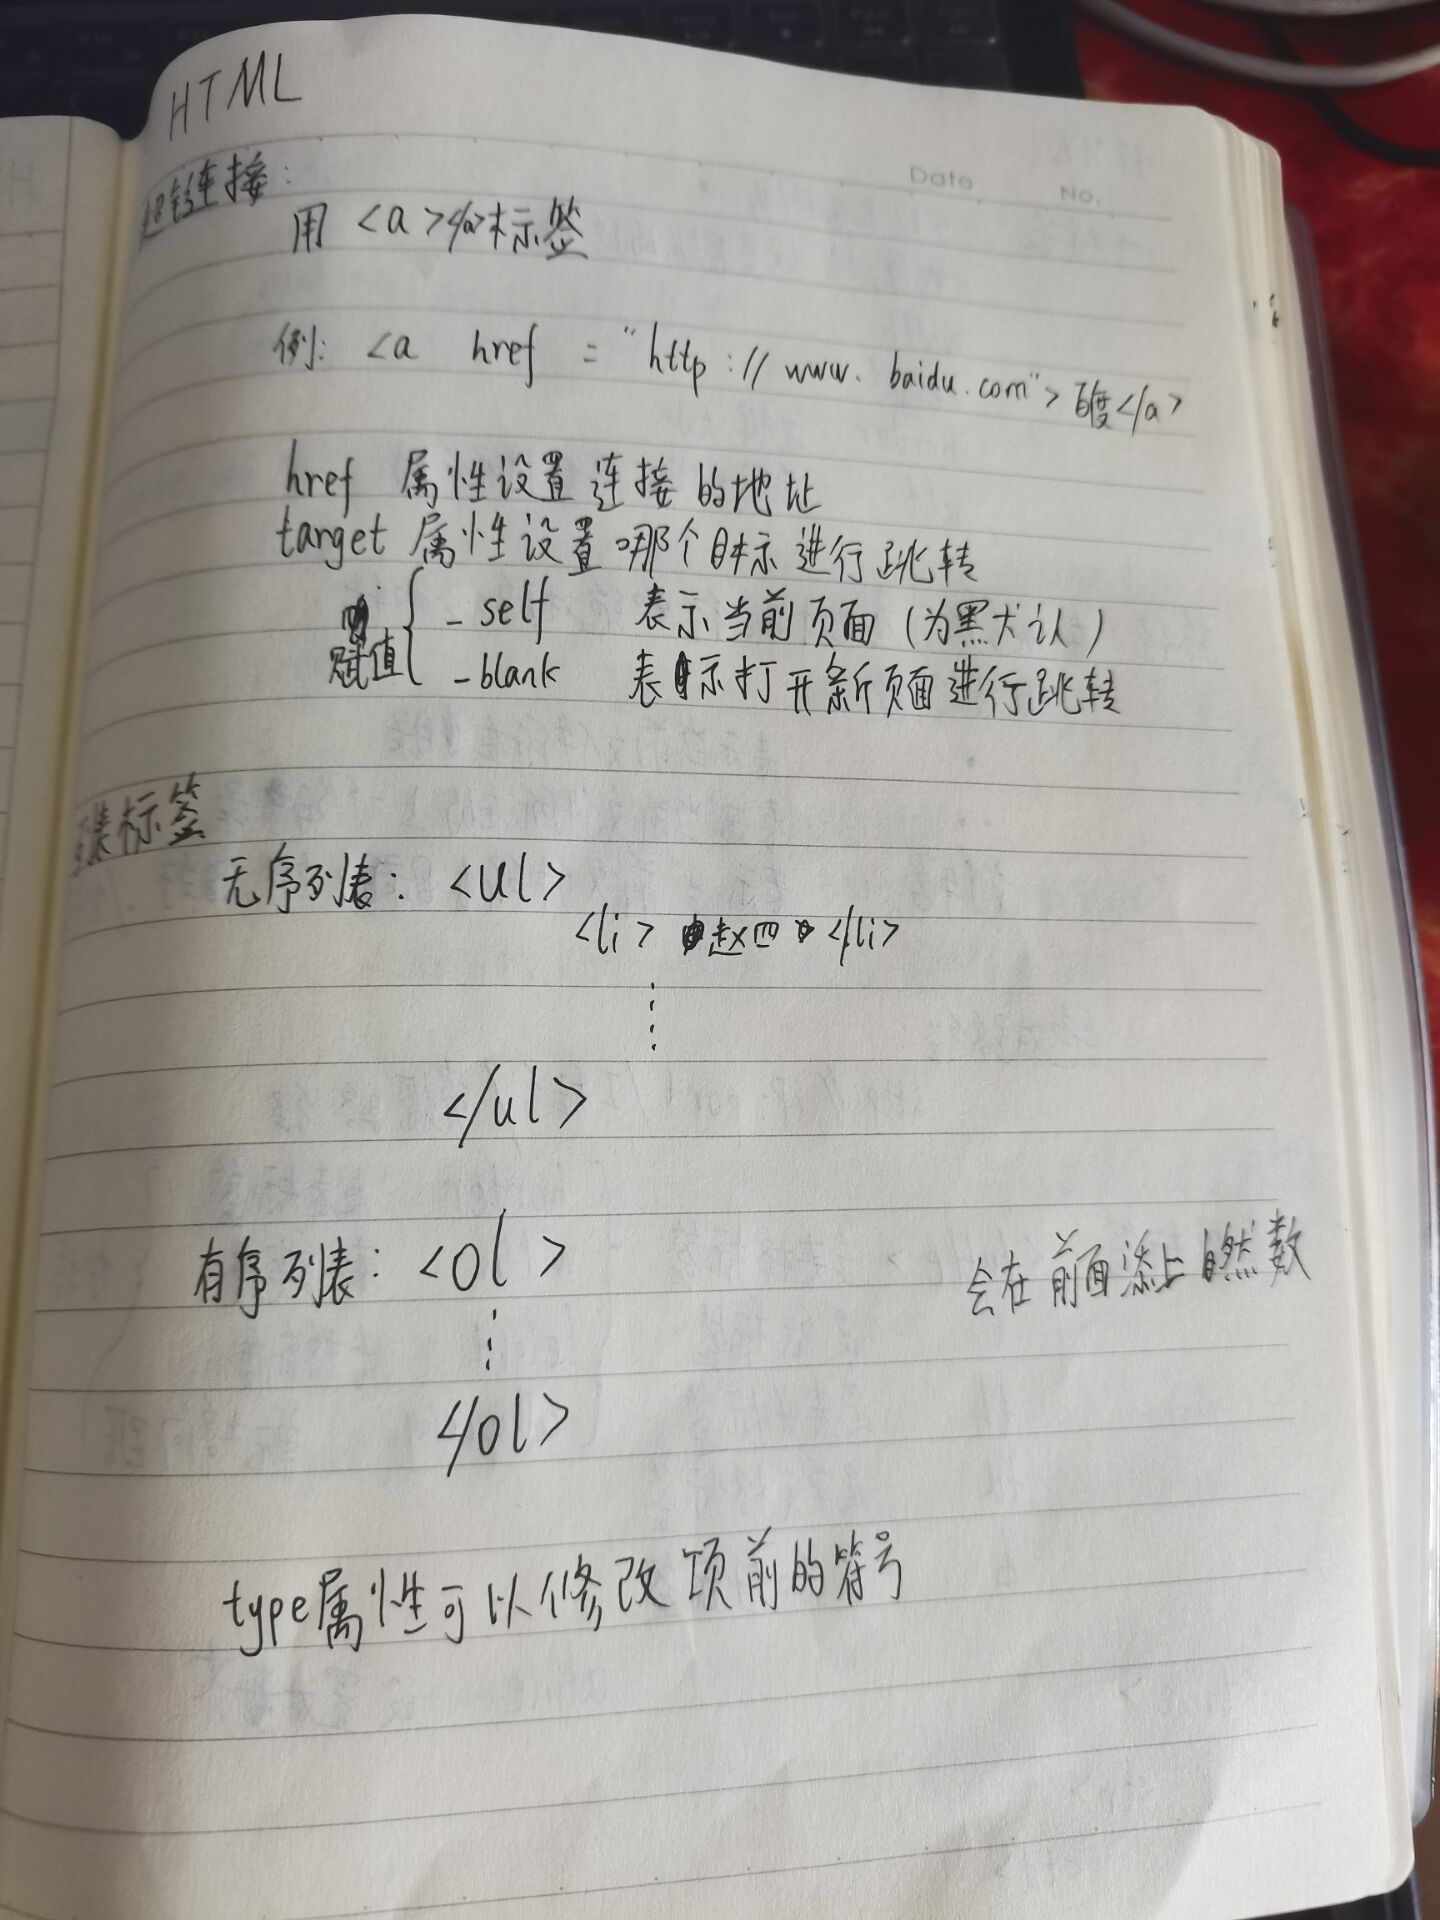 HTML
Date No.
超链连接：
用 <a></a>标签
例: <a href = "http://www.baidu.com">百度</a>
href 属性设置连接的地址
target 属性设置哪个目标进行跳转
赋值 { _self 表示当前页面 (为默认)
_blank 表示打开新页面进行跳转
标签
无序列表: <ul>
<li> 赵四 </li>
⋮
</ul>
有序列表: <ol> 会在前面添上自然数
⋮
</ol>
type属性可以修改项前的符号